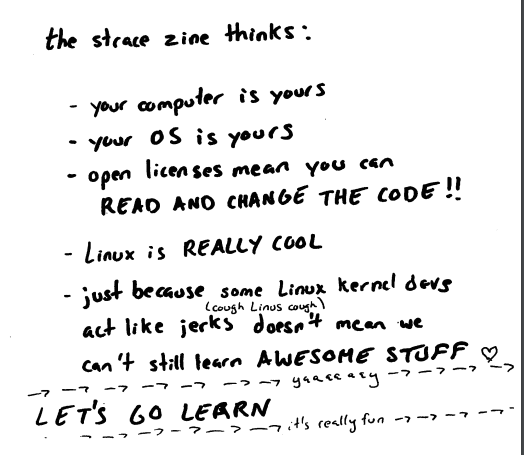 the strace zine thinks:
- your computer is yours
- your OS is yours
- open licenses mean you can
READ AND CHANGE THE CODE!!
- Linux is REALLY COOL
- just because some Linux kernel devs
(cough Linus cough)
act like jerks doesn't mean we
can't still learn AWESOME STUFF ♡
yaaaaaay
LET'S GO LEARN
it's really fun